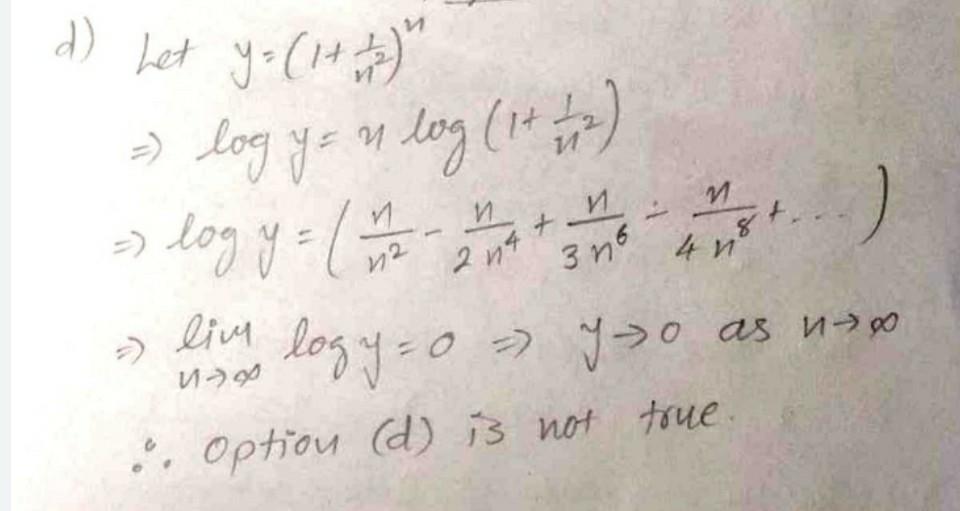 d) Let y=(1+1/n²)ⁿ
⇒ log y = n log (1+1/n²)
⇒ log y = (n/n² - n/2n⁴ + n/3n⁶ - n/4n⁸ + ....)
⇒ lim n→∞ log y = 0 ⇒ y→0 as n→∞
∴ Option (d) is not true.